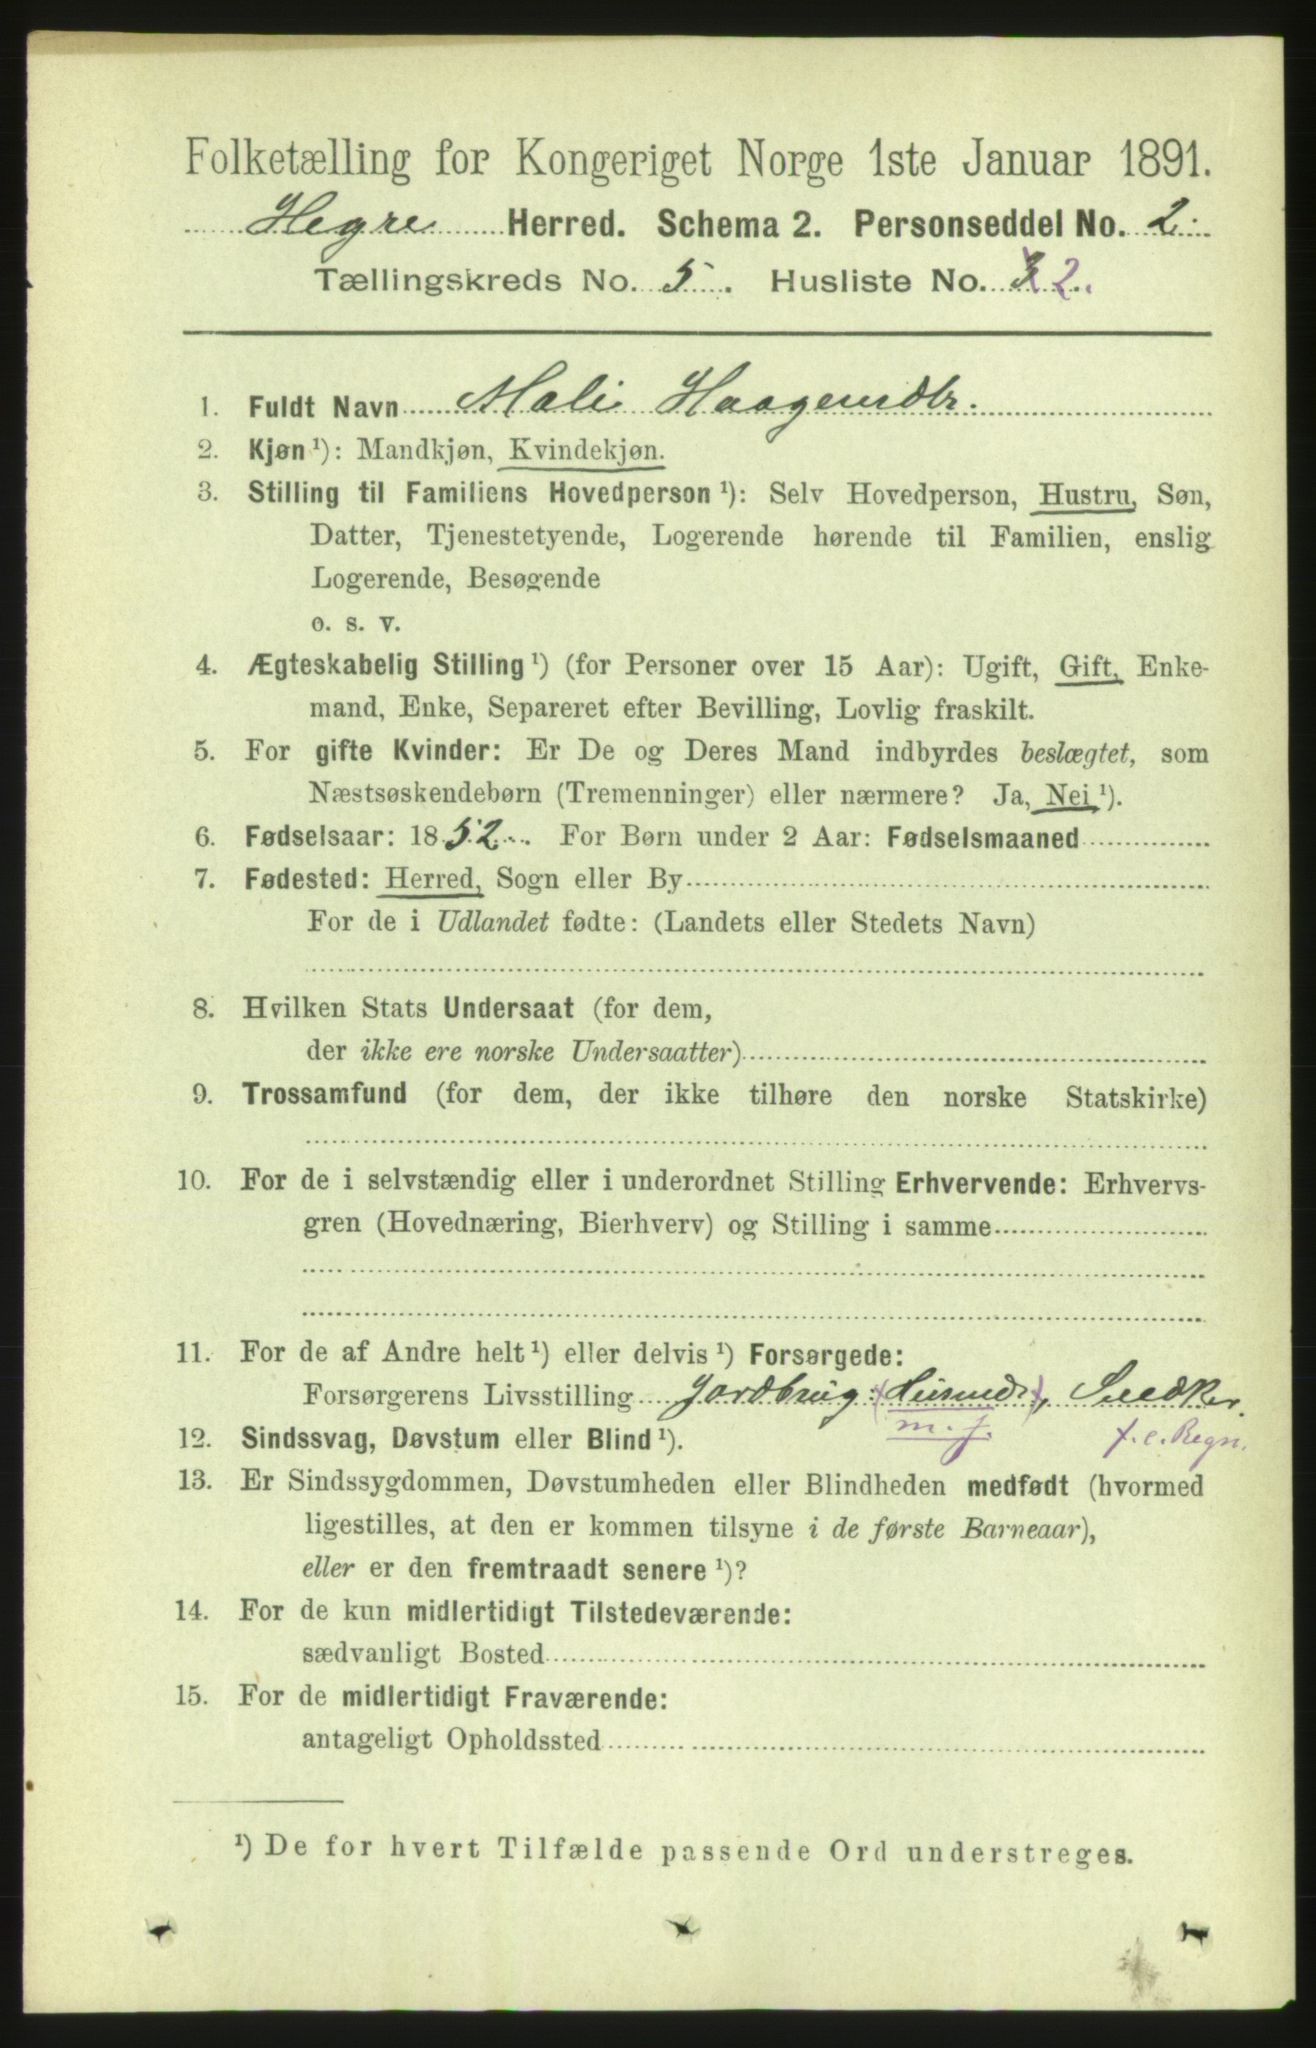 Folketælling for Kongeriget Norge 1ste Januar 1891.
Hegre Herred. Schema 2. Personseddel No. 2.
Tællingskreds No. 5. Husliste No. 3 2.
1. Fuldt Navn Mali Haagensdtr.
2. Kjøn ¹): Mandkjøn, Kvindekjøn.
3. Stilling til Familiens Hovedperson ¹): Selv Hovedperson, Hustru, Søn,
Datter, Tjenestetyende, Logerende hørende til Familien, enslig
Logerende, Besøgende
o. s. v.
4. Ægteskabelig Stilling ¹) (for Personer over 15 Aar): Ugift, Gift, Enke-
mand, Enke, Separeret efter Bevilling, Lovlig fraskilt.
5. For gifte Kvinder: Er De og Deres Mand indbyrdes beslægtet, som
Næstsøskendebørn (Tremenninger) eller nærmere? Ja, Nei ¹).
6. Fødselsaar: 1852. For Børn under 2 Aar: Fødselsmaaned
7. Fødested: Herred, Sogn eller By
For de i Udlandet fødte: (Landets eller Stedets Navn)
8. Hvilken Stats Undersaat (for dem,
der ikke ere norske Undersaatter)
9. Trossamfund (for dem, der ikke tilhøre den norske Statskirke)
10. For de i selvstændig eller i underordnet Stilling Erhvervende: Erhvervs-
gren (Hovednæring, Bierhverv) og Stilling i samme
11. For de af Andre helt ¹) eller delvis ¹) Forsørgede:
Forsørgerens Livsstilling Jordbrug (Husmd), Snedker.
m. j. f. e. Regn.
12. Sindssvag, Døvstum eller Blind ¹).
13. Er Sindssygdommen, Døvstumheden eller Blindheden medfødt (hvormed
ligestilles, at den er kommen tilsyne i de første Barneaar),
eller er den fremtraadt senere ¹)?
14. For de kun midlertidigt Tilstedeværende:
sædvanligt Bosted
15. For de midlertidigt Fraværende:
antageligt Opholdssted
¹) De for hvert Tilfælde passende Ord understreges.